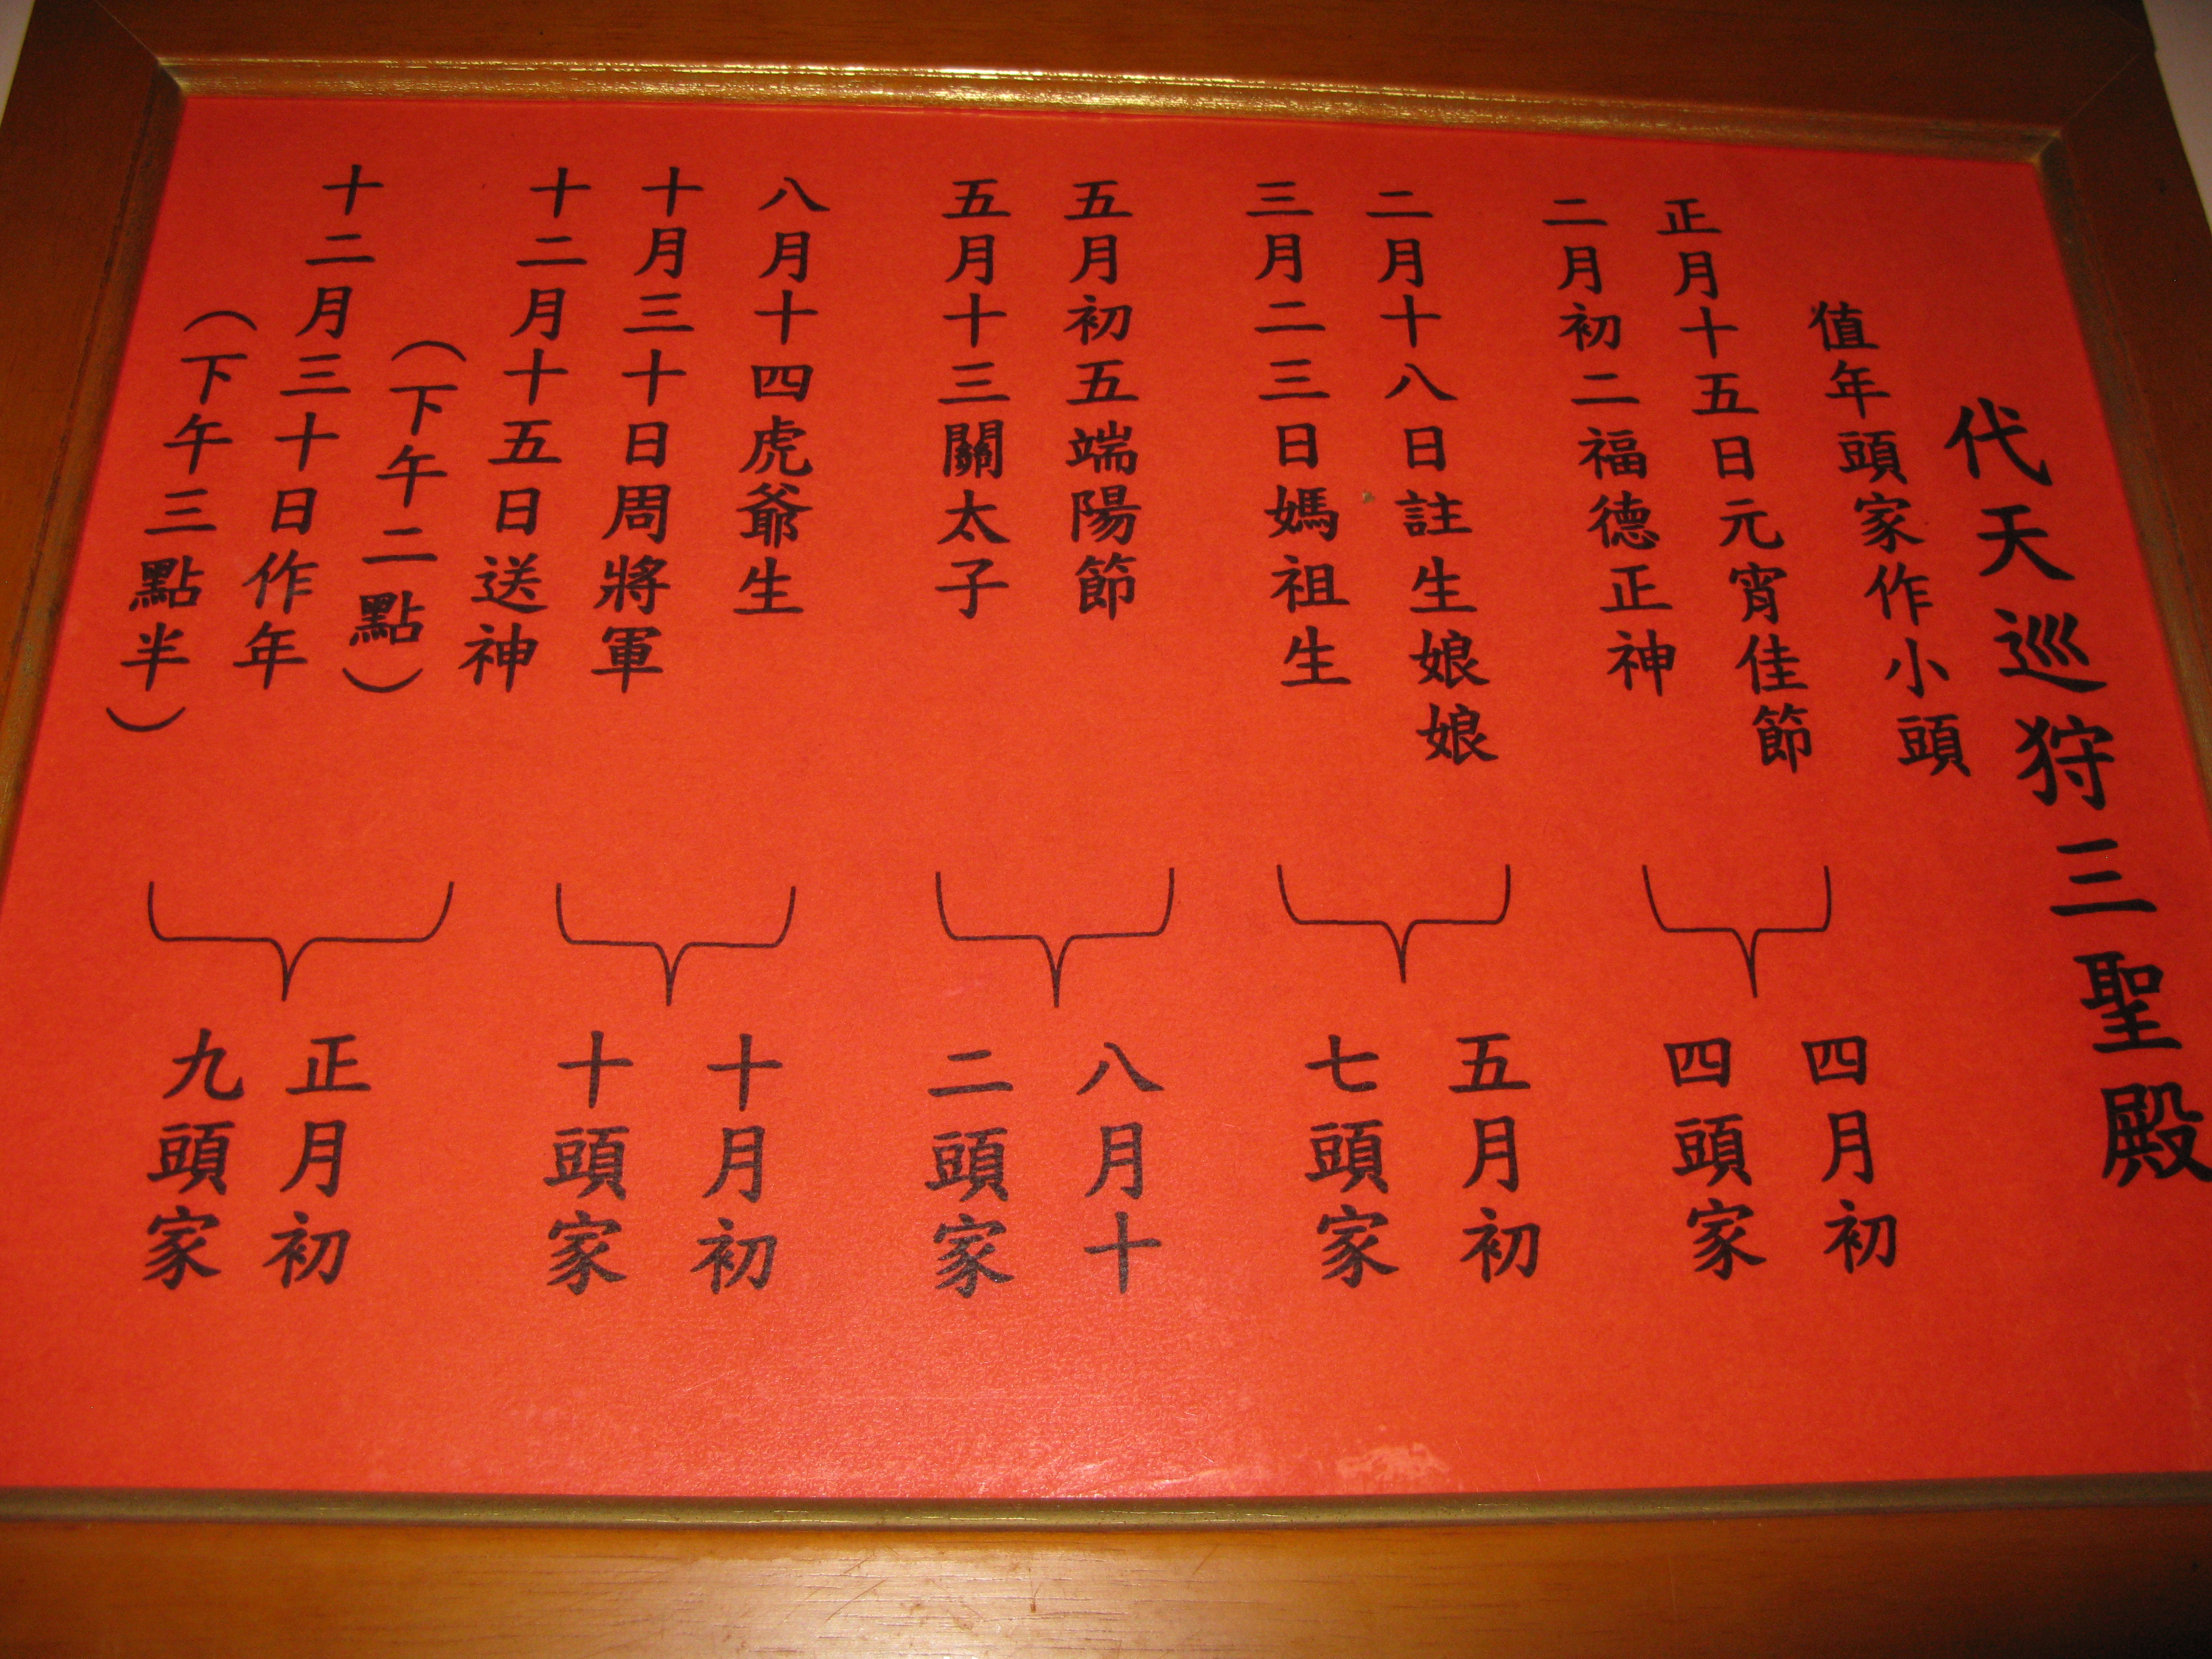 代天巡狩三聖殿
值年頭家作小頭
正月十五日元宵佳節
二月初二福德正神
四月初
四頭家
二月十八日註生娘娘
三月二三日媽祖生
五月初
七頭家
五月初五端陽節
五月十三關太子
八月十
二頭家
八月十四虎爺生
十月三十日周將軍
十月初
十頭家
十二月十五日送神
（下午二點）
十二月三十日作年
（下午三點半）
正月初
九頭家